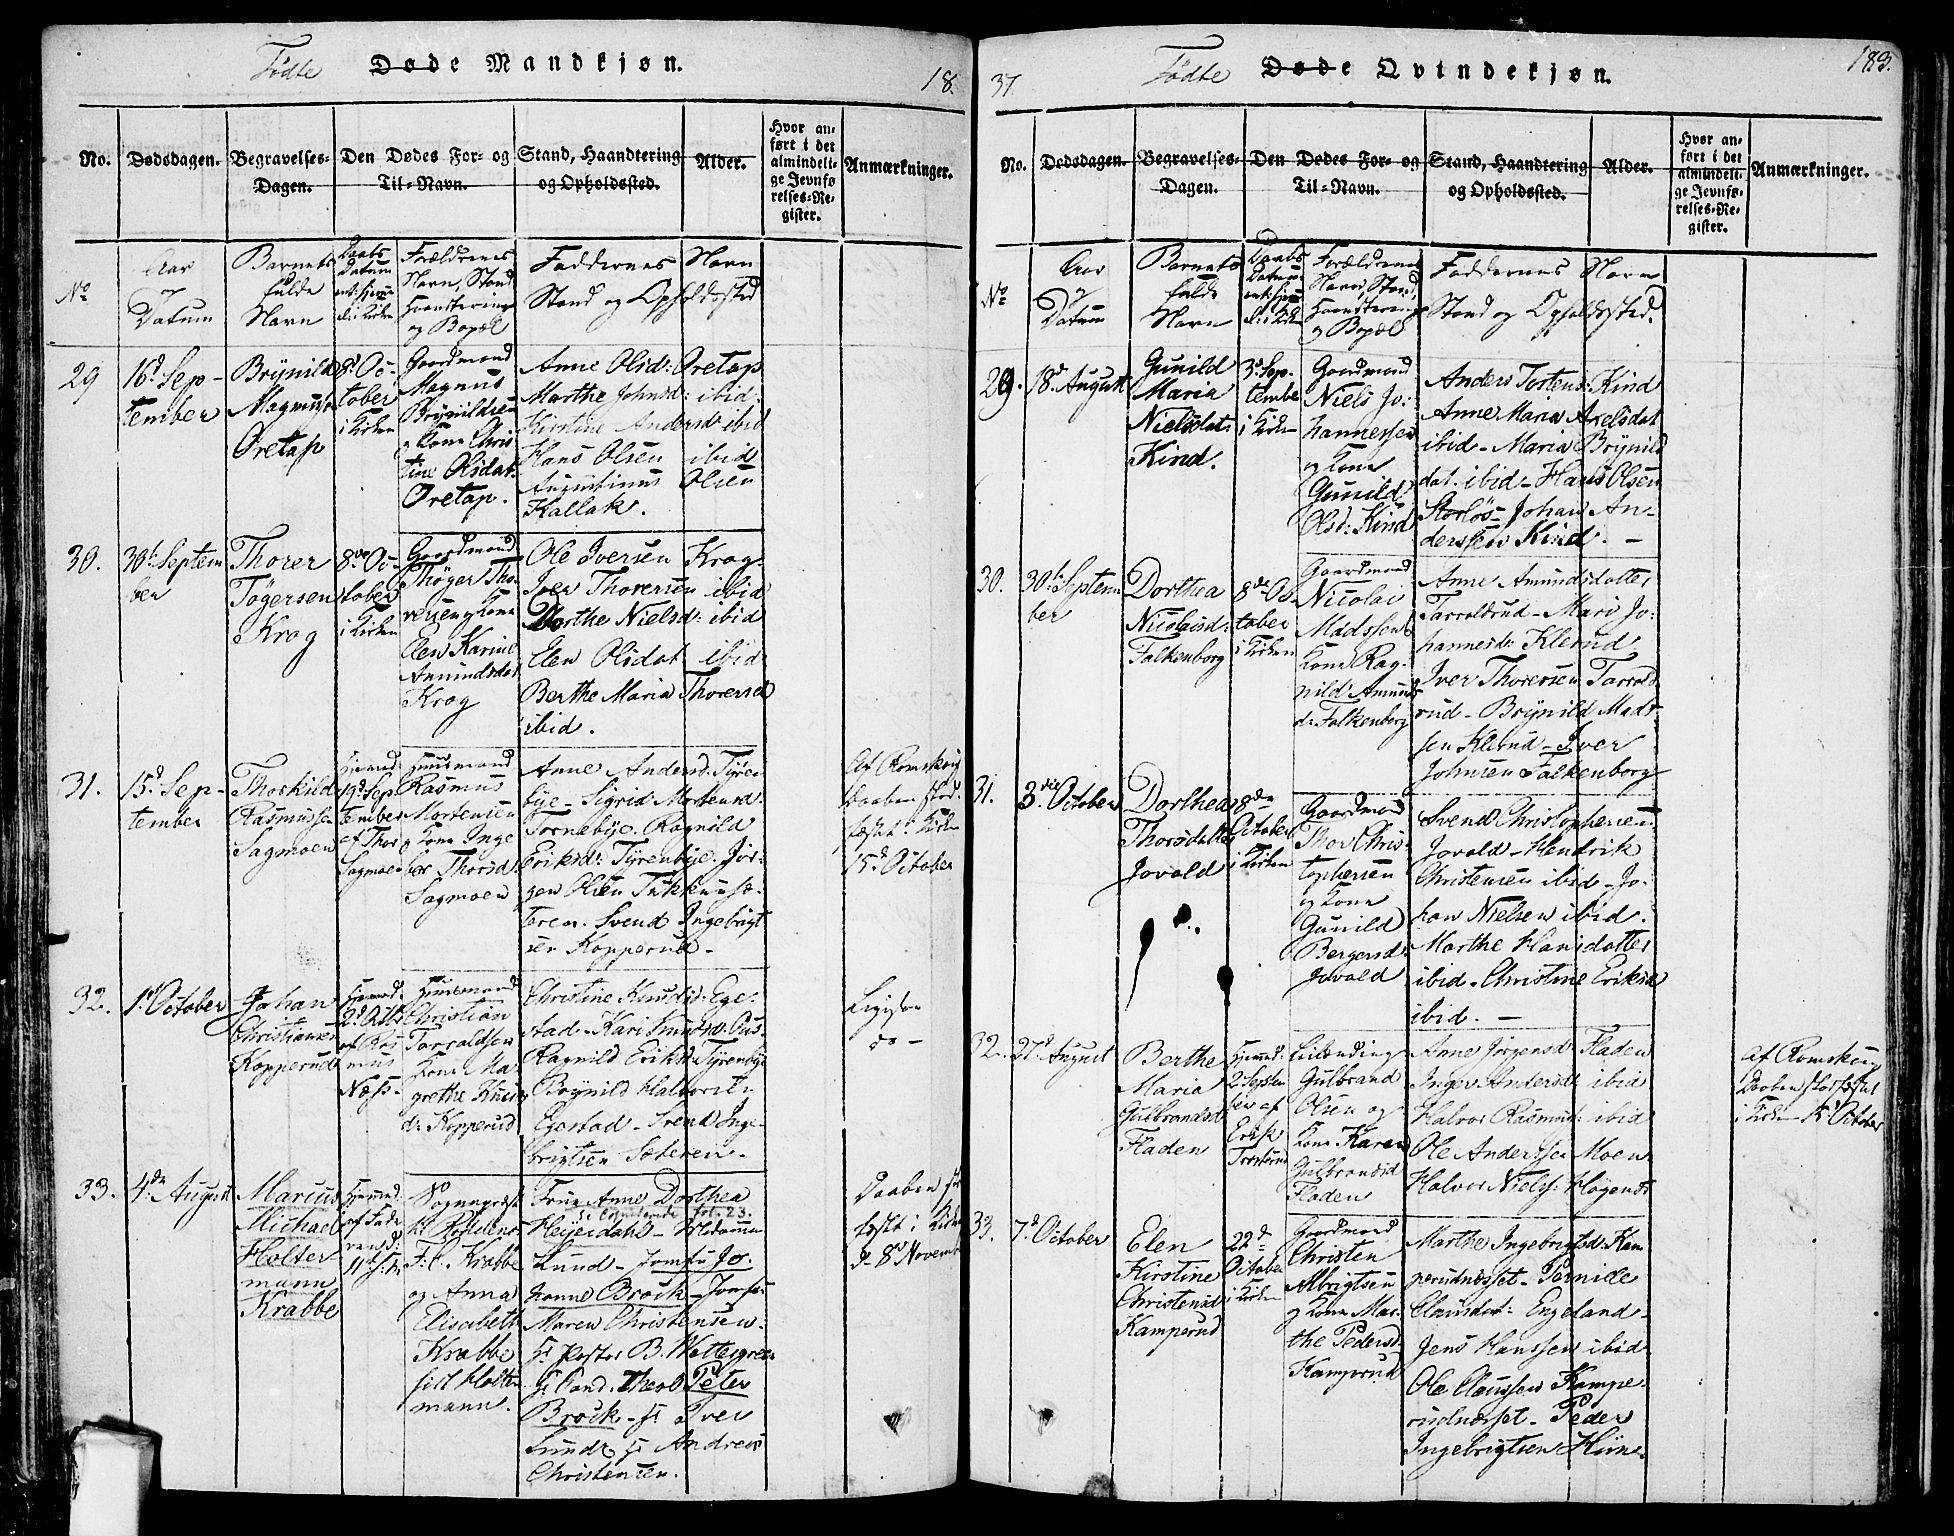 Födte Døde Mandkjøn.
18.
No.
Dødsdagen.
Begravelses-
Dagen.
Den Dødes For- og
Til-Navn.
Stand, Haandtering
og Opholdssted.
Alder.
Hvor an-
ført i det
almindeli-
ge Jevnfø
relses-Re-
gister.
Anmærkninger.
No
Aar
og
Datum
Barnets
fulde
Navn
Daabs
Datum
Forældrenes
Navn, Stand
Haandtering
og Bopæl
Faddernes Navn
Stand og Opholdssted
29
16d Sep-
tember
Brÿnild
Magnussen
Öretap
8d Oc-
tober
i Kirken
Gaardmand
Magnus
Brÿnildsen
og Kone Chris
tine Olsdat:
Öretap.
Anne Olsd: Öretap
Marthe Johnsd: ibid.
Kirstine Andersd: ibid
Hans Olsen ibid
Augustinus Olsen
Kallak.
30.
30te Septem
ber
Thorer
Tögersen
Krog
8de Oc-
tober
i Kirken
Gaardmand
Thöger Tho-
resen og Kone
Elen Karine
Amundsdat
Krog
Ole Iversen Krog.
Iver Thoresen ibid
Dorthe Nielsd: ibid
Elen Olsdat ibid
Berthe Maria Thoresd
ibid.
31.
15d Sep-
tember
Thorkild
Rasmussen
Sagmoen
Hjemmed:
19d Sep
tember
af Thor
Sagmoen
Huusmand
Rasmus
Mortensen
og Kone Inge
bor Thorsd:
Sagmoen
Anne Andersd: Tÿre-
bÿe - Sigrid Mortensd:
Tornebÿe. Ragnild
Eriksd: Tÿrenbÿe. Jör-
gen Olsen Tukkusæ-
teren. Svend Ingebrigt
sen Kopperud -
Af Romskoug
Daaben stad-
fæstet i Kirken
15d October
32.
1d October
Johan
Christiansen
Kopperud
Hjemmed:
2d Octbr
af Ras
mus
Næss.
Huusmand
Christian
Torvaldsen
Kone Ma
grethe Knud
d: Kopperud
Christine Knudsd: Ege-
stad - Kari Knudsd: Aus
Ragnild Eriksd: Tÿrenbÿe
Brÿnild Halvorsen
Egestad - Svend Inge-
brigtsen Sæteren.
Ligesaa
33.
4de August
Marcus
Michael
Holter
mann
Krabbe
Hjemmed:
af Fade
ren sd:
11te s: M:
Sognepræst
til Rödenes
F. C. Krabbe
og Anna
Elisabeth
Krabbe
föd Holter
mann.
Frue Anne Dorthea
fol. 23.
Heÿerdahl - Madame
Lund - Jomfru Jo-
hanne Brock - Jomfr:
Maren Christensen.
Hr Pastor B. Wettergreen
Hr Cand. Theol Peter
Brock - Hr Iver
Lund Hr Andreas
Christensen.
Daaben stad
fæstet i Kirken
d. 8d Novemb
37.
Födte Døde Qvindekjøn.
183.
No.
Dødsdagen.
Begravelses-
Dagen.
Den Dødes For- og
Til-Navn.
Stand, Haandtering
og Opholdssted.
Alder.
Hvor an-
ført i det
almindeli-
ge Jevnfø-
relses-Re-
gister.
Anmærkninger.
No
Aar
og
Datum
Barnets
fulde
Navn
Daabs
Datum
Forældrenes
Navn, Stand,
Haandtering
og Bopæl
Faddernes Navn
Stand og Opholdssted.
29.
18d August
Gunild
Maria
Nielsdat:
Kind.
3d Sep-
tember
i Kirken
Gaardmand
Niels Jo-
hannessen
og Kone
Gunild
Olsd: Kind
Anders Tortens: Kind
Anne Maria Axelsdat
ibid - Maria Brÿnild
dat. ibid - Hans Olsen
Storlös - Johan An-
derssen Kind. -
30.
30te Septem
ber
Dorthea
Nicolaisd:
Falkenborg
8de Oc-
tober
i Kirken
Gaardmand
Nicolai
Madssen &
Kone Rag-
nild Amunds
d: Falkenborg
Anne Amundsdatter
Tarraldrud - Mari Jo-
hannesd: Klerud
Iver Thoresen Tarrald
rud - Brÿnild Mads-
sen Klerud - Iver
Johnsen Falkenborg
31.
3die October
Dorthea
Thorsdatter
Jovald
8de
October
i Kirken
Gaardmand
Thor Chris-
tophersen
og Kone
Gunild
Bergersd:
Jovald
Svend Christophersen
Jovald - Hendrik
Christensen ibid - Jo-
han Nielsen ibid.
Marthe Hansdatter
ibid - Christine Eriksd
ibid. -
32.
27d August
Berthe
Maria
Gulbrandsd
Fladen
Hjemmed:
2 Septem
ber af
Erik
Trosterud
Leilending
Gulbrand
Olsen og
Kone Karen
Gulbrandsd
Fladen
Anne Jörgensd: Fladen
Inger Andersd: ibid
Halvor Rasmus: ibid
Ole Anderssen Moen
Halvor Niels: Högenæs
Af Romskoug
Daaben stadfæstet
i Kirken 15d October
33.
7d October
Elen
Kirstine
Christensd
Kamperud
22de
October
i Kirken
Gaardmand
Christen
Albrigtsen
og Kone Mar-
the Pedersd
Kamperud
Marthe Ingebrigtsd: Kam
perudnæsset - Pernille
Clausdat: Engeland -
Jens Hanssen ibid
Ole Claussen Kampe-
rudnæsset - Peder
Ingebrigtsen Hiin.